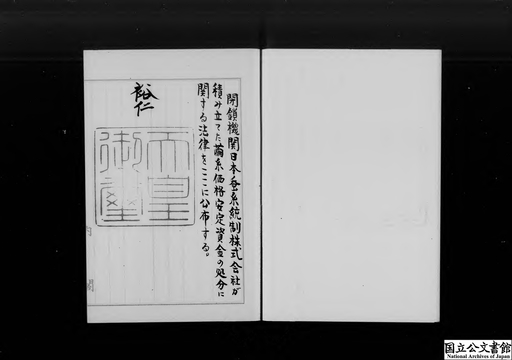 閉鎖機関日本蚕糸統制株式会社が
積み立てた繭糸価格安定資金の処分に
関する法律をここに公布する。
裕仁
天皇
御璽
国立公文書館
National Archives of Japan